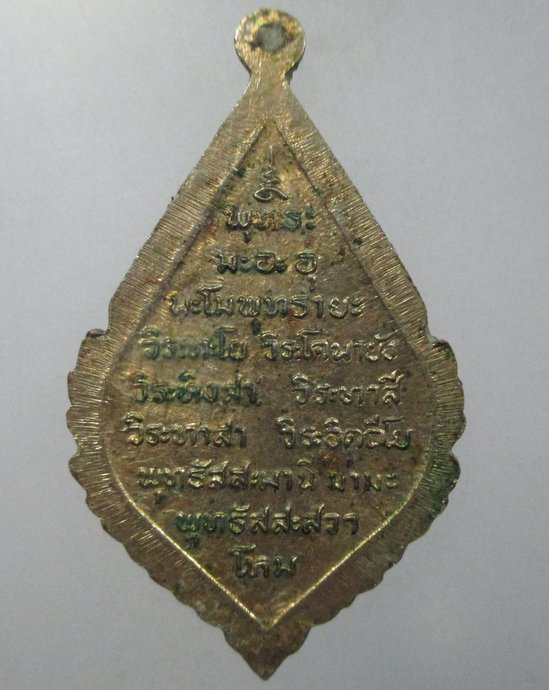 พุทธะ
มะอะอุ
นะโมพุทธายะ
วิระทะโย วิระโคนายัง
วิระหิงสา วิระทาสี
วิระทาสา วิระอิตถีโย
พุทธัสสะมานี มามะ
พุทธัสสะสวา
โหม